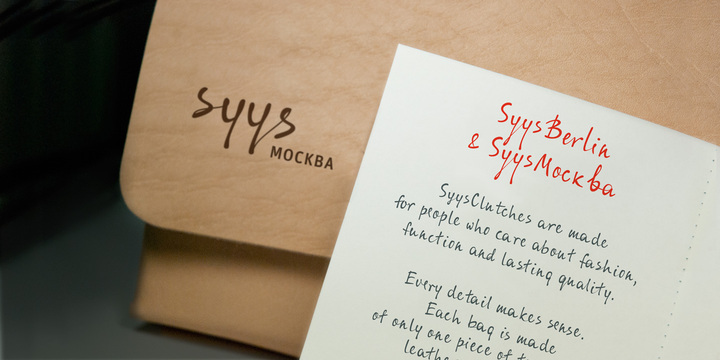 syys
МОСКВА
SyysBerlin
& SyysМосква
SyysClutches are made
for people who care about fashion,
function and lasting quality.
Every detail makes sense.
Each bag is made
of only one piece of